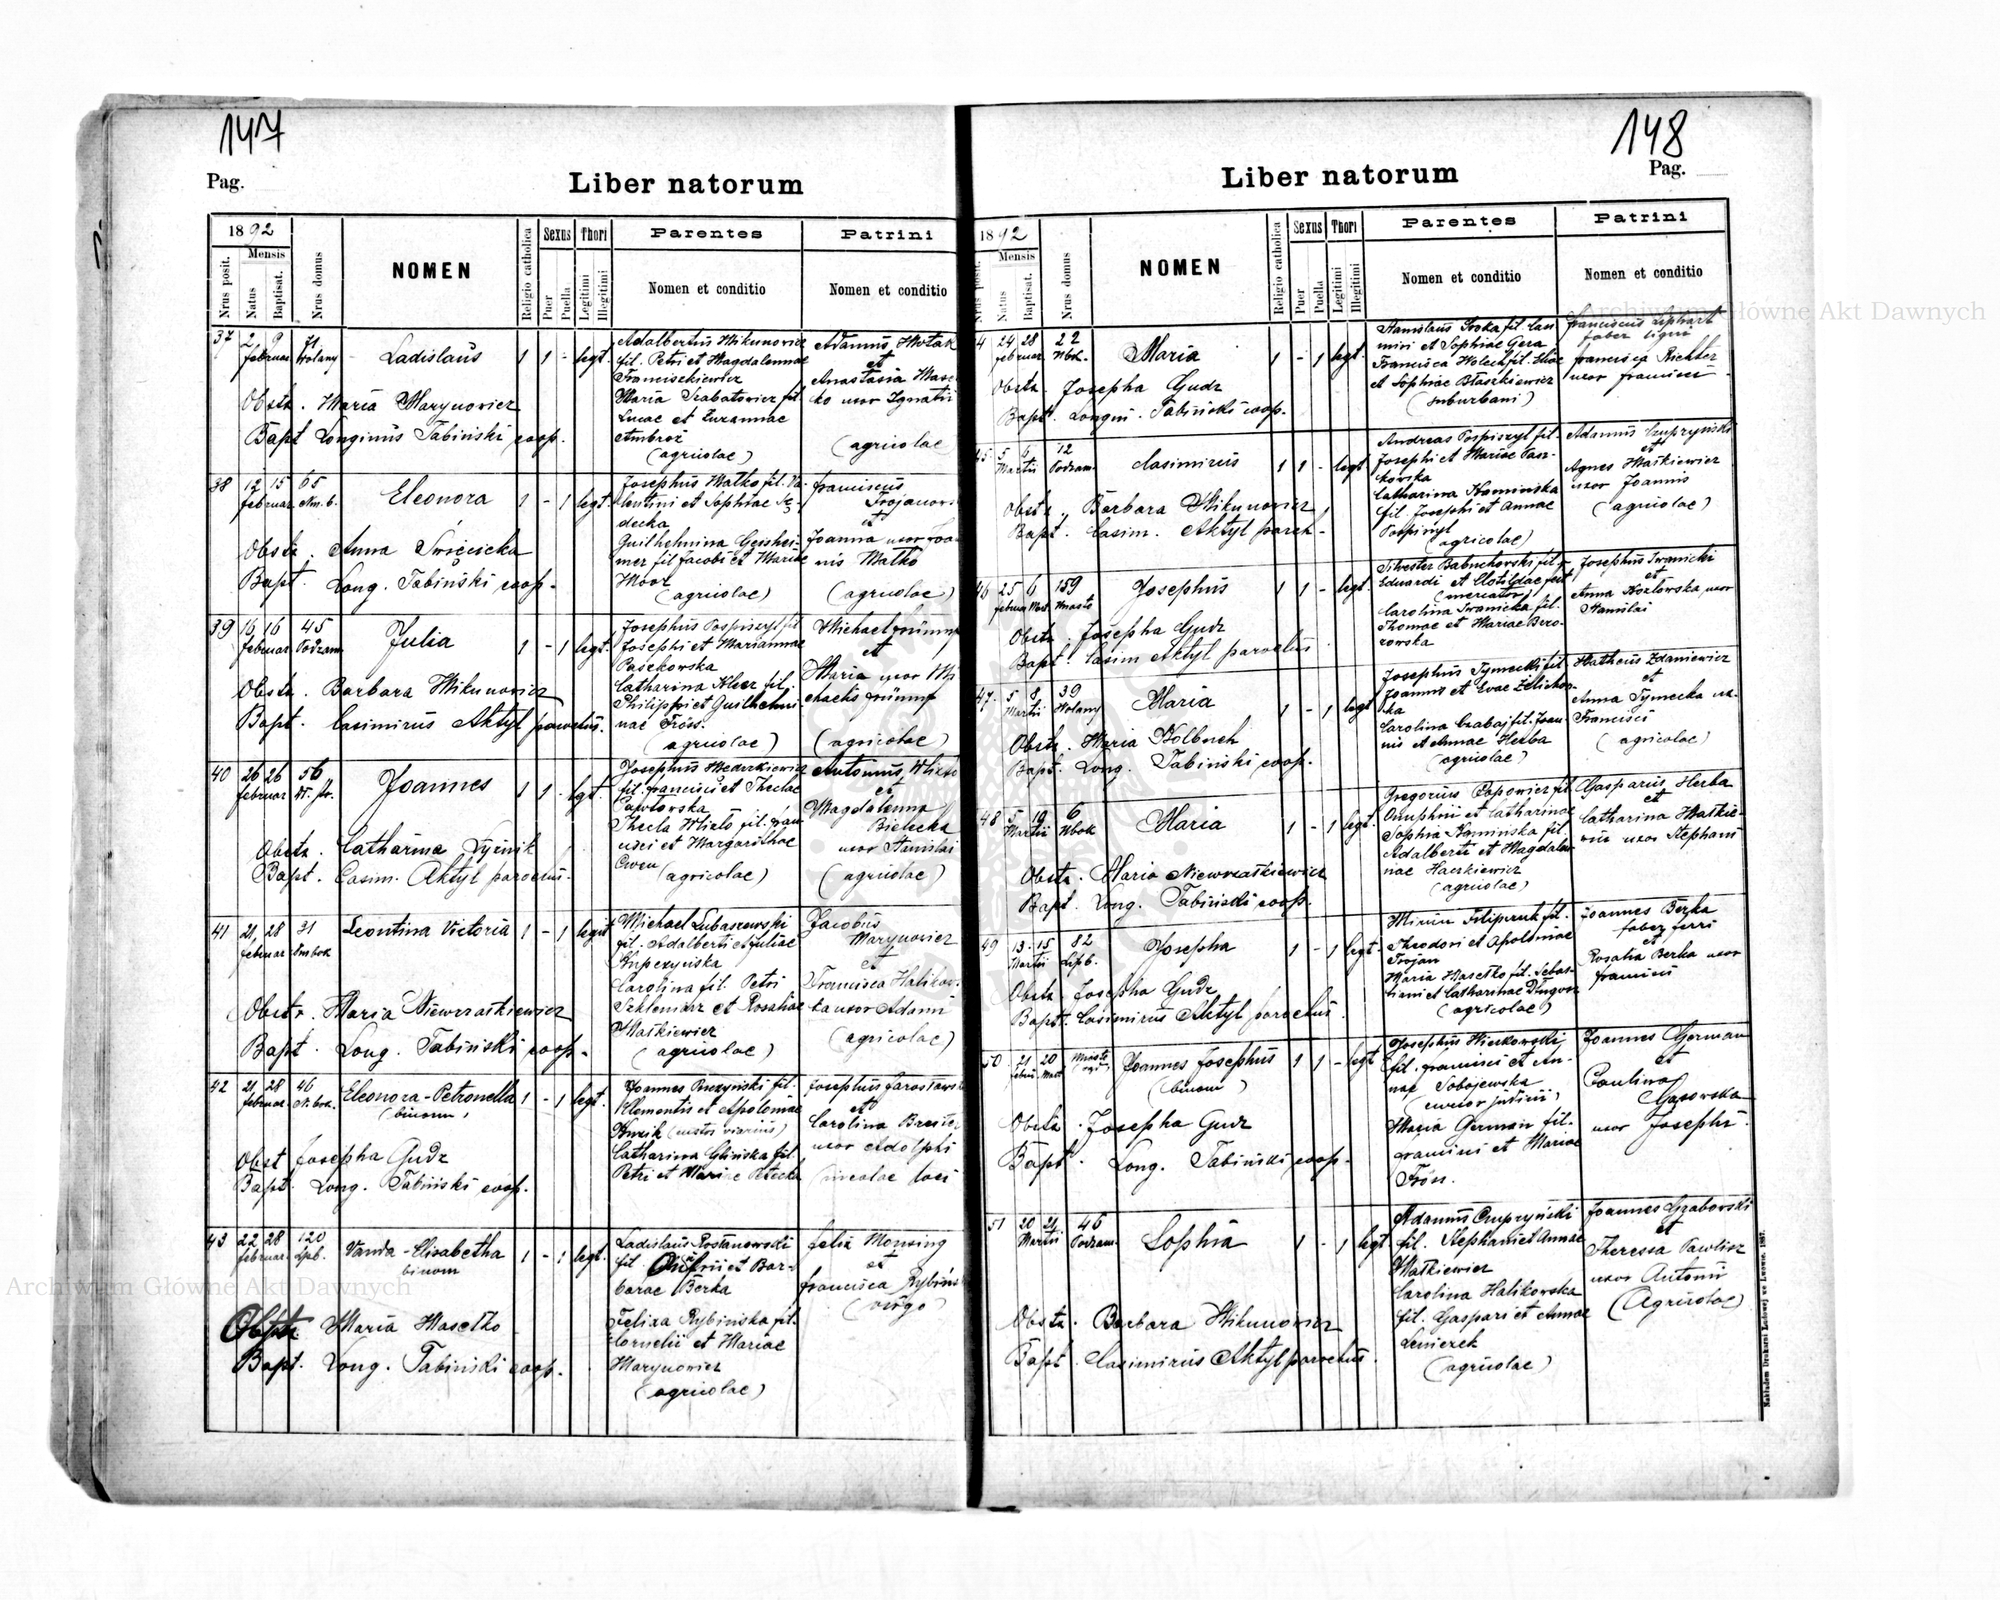 147
Pag.
Liber natorum
1892
Mensis
Nrus posit.
Natus
Baptisat.
Nrus domus
NOMEN
Religio catholica
Sexus
Puer
Puella
Thori
Legitimi
Illegitimi
Parentes
Nomen et conditio
Patrini
Nomen et conditio
37 2 9 71 Ladislaus 1 1 - legt.
februar Wolany
Adalbertus Mikunowicz
fil. Petri et Magdalennae
Franciszkiewicz
Maria
Lucae et Zuzannae
Ambroz
(agricolae)
Adamus
et
Anastasia
uxor Ignatii
(agricolae
Obstr. Maria Marynowicz
Bapt Longinus Tabiński coop.
38 12 15 65 Eleonora 1 - 1 legt.
februar
Josephus Matko fil. Va-
lentini et Sophiae Se-
decka
Guilhelmina Geishei-
mer fil Jacobi et Mariae
Moor
(agricolae)
franciscus
et
Joanna uxor Joa
nis Matko
(agricolae)
Obstr. Anna
Bapt. Long. Tabiński coop.
39 16 16 45 Julia 1 - 1 legt.
februar Podzam
Josephus Pospiszyl fil
Josephi et Mariannae
Paszkowska
Catharina Kleer fil.
Philippi et Guilhelmi-
nae Tröss.
(agricolae)
Michael
et
Maria uxor Mi
chaelis
(agricolae)
Obstr. Barbara Mikunowicz
Bapt. Casimirus Aktyl parochus.
40 26 26 56 Joannes 1 1 - legt.
februar
Josephus
fil. francisci et Theclae
Pawlowska
Thecla
et Margarithae
Owen (agricolae)
Antonius
et
Magdalenna
Bielecka
uxor Stanislai
(agricolae)
Obstr. Catharina
Bapt. Casim. Aktyl parochus.
41 21 28 31 Leontina Victoria 1 - 1 legit
februar
Michael Lubaszewski
fil. Adalberti et Juliae
Carolina fil. Petri
et Rosaliae
Maśkiewicz
(agricolae)
Jacobus
Marynowicz
et
Francisca
uxor Adami
(agricolae)
Obstr. Maria Niewrzaśkiewicz
Bapt. Long. Tabiński coop.
42 21 28 46 Eleonora-Petronella 1 - 1 legt.
februar
(binom)
Joannes
Klementis et Apoloniae
Catharina Glińska fil.
Petri et Mariae
Josephus
et
Carolina
uxor Adolphi
Obst Josepha Gudz
Bapt. Long. Tabiński coop.
43 22 28 120 Vanda-Elisabetha 1 - 1 legt.
februar Lpb.
binom
Ladislaus Rostanowski
fil. et Bar-
barae Berka
Felixa Rybińska fil.
Cornelii et Mariae
Marynowicz
(agricolae)
Felix Monsing
et
francisca
(virgo)
Obstr Maria Masełko
Bapt. Long. Tabiński coop.
148
Pag.
Liber natorum
1892
Mensis
Nrus posit.
Natus
Baptisat.
Nrus domus
NOMEN
Religio catholica
Sexus
Puer
Puella
Thori
Legitimi
Illegitimi
Parentes
Nomen et conditio
Patrini
Nomen et conditio
4 24 28 22 Maria 1 - 1 legt.
februar
Stanislaus Sroka fil. Casi
miri et Sophiae Gera
Francisca
et Sophiae Błaszkiewicz
(suburbani)
faber ligni
francisca Richter
uxor francisci
Obstr. Josepha Gudz
Bapt. Longin. Tabiński coop.
45 5 6 12 Casimirus 1 1 - legt
Martii Podzam
Andreas Pospiszyl fil.
Josephi et Mariae Pasz-
kowska
Catharina Kaminska
fil. Josephi et Annae
Pospiszyl
(agricolae)
Adamus Czupryński
et
Agnes Maśkiewicz
uxor Joannis
(agricolae)
Obstr. Barbara Mikunowicz
Bapt. Casim. Aktyl paroch-
46 25 6 159 Josephus 1 1 - legt.
februar Mart Miasto
Silvester Babuchowski fil.
Eduardi et Clotildae
(mercator)
Carolina Iwanicka fil.
Thomae et Mariae Bero-
zowska
Josephus Iwanicki
et
Anna Kozłowska uxor
Stanislai
Obstr. Josepha Gudz
Bapt. Casim Aktyl parochus
47. 5 8 39 Maria 1 - 1 legt
Martii Wolany
Josephus Tymecki fil.
Joannis et Evae
Carolina Czabaj fil. Joan-
nis et Annae Herba
(agricolae)
Matheus Zdaniewicz
et
Anna Tymecka ux.
Francisci
(agricolae)
Obstr. Maria Kolbuch
Bapt. Long. Tabiński coop.
48 5 19 6 Maria 1 - 1 legt.
Martii
Gregorius Popowicz fil
Onuphrii et Catharinae
Sophia Kaminska fil.
Adalberti et Magdalen
nae
(agricolae)
Gasparus Herba
et
Catharina Maśkie-
wicz uxor Stephani
Obstr. Maria Niewrzaśkiewicz
Bapt. Long. Tabiński coop.
49 13 15 82 Josepha 1 - 1 legt.
Martii Lipb.
fil.
Theodori et Apoloniae
Trojan
Maria Masełko fil. Sebas-
tiani et Catharinae Długosz
(agricolae)
Joannes Berka
faber ferri
et
Rosalia Berka uxor
francisci
Obstr. Josepha Gudz
Bapt. Casimirus Aktyl parochus.
50 21 20 Joannes Josephus 1 1 - legt
(binom)
Josephus
fil. francisci et An-
nae Sobojewska
Maria German fil.
francisci et Mariae
Tröss.
Joannes German
et
Paulina
uxor Josephi.
Obstr. Josepha Gudz
Bapt. Long. Tabiński coop.
51 20 21 46 Sophia 1 - 1 legt
Martii Podzam
Adamus Czupryński
fil. Stephani et Annae
Maśkiewicz
Carolina Halikowska
fil. Gaspari et Annae
(agricolae)
Joannes Grabowski
et
Theressa Pawlisz
uxor Antonii
(Agricolae)
Obstr. Barbara Mikunowicz
Bapt. Casimirus Aktyl parochus.
Nakładem Drukarni Ludowej we Lwowie. 1887.
Archiwum Główne Akt Dawnych
Archiwum Główne Akt Dawnych